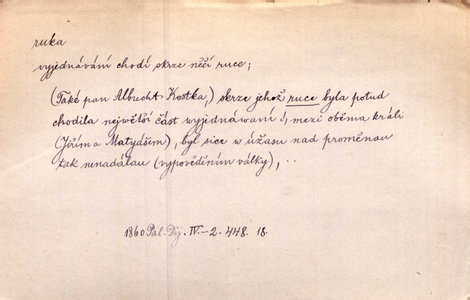 ruka
vyjednávání chodí skrze něčí ruce;
(Také pan Albrecht Kostka,) skrze jehož ruce byla potud
chodila největší část wyjednáwaní mezi oběma králi
(Jiřím a Matyášem), byl sice w úžasu nad proměnou
tak nenadálau (vypověděním války), ..
1860 Pal. Děj. IV.-2. 448. 18.